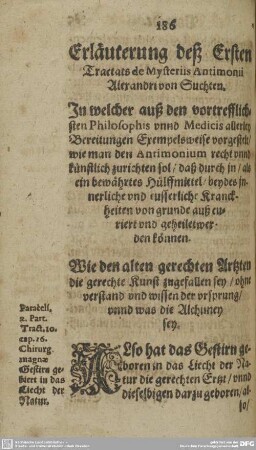 186
Erläuterung deß Ersten
Tractats de Mysteriis Antimonii
Alexandri von Suchten.
In welcher auß den vortrefflich-
sten Philosophis vnnd Medicis allerley
Bereitungen Exempelsweise vorgestelt/
wie man den Antimonium recht vnnd
künstlich zurichten sol/ daß durch in/ als
ein bewährtes Hülffmittel/ beydes in-
nerliche vnd eusserliche Kranck-
heiten von grunde auß cu-
riert vnd geheilet wer-
den können.
Wie den alten gerechten Artzten
die gerechte Kunst zugefallen sey/ ohne
verstand vnd wissen der vrsprung/
vnnd was die Alchimey
sey.
Paracels.
2. Part.
Tract. 10.
cap. 16.
Chirurg.
magnæ
Gestirn ge-
biert in das
Liecht der
Natur.
ALso hat das Gestirn ge-
boren in das Liecht der Na-
tur die gerechten Ertzt/ vnnd
dieselbigen darzu geboren/ al-
so/